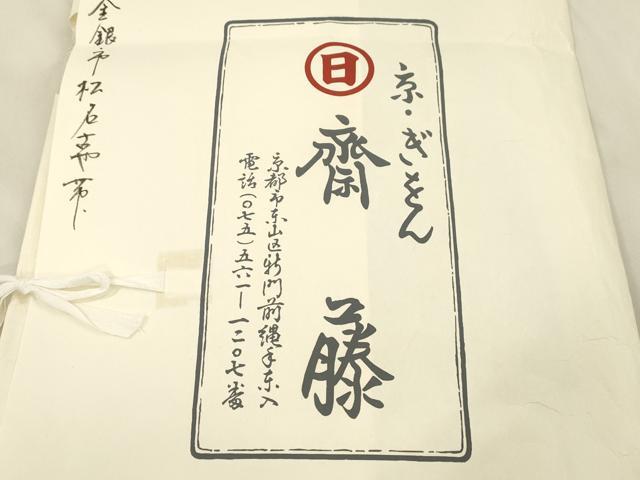 日
京・ぎをん
齋藤
京都市東山区新門前縄手東入
電話(〇七五)五六一―一二〇七番
金銀市松石帯